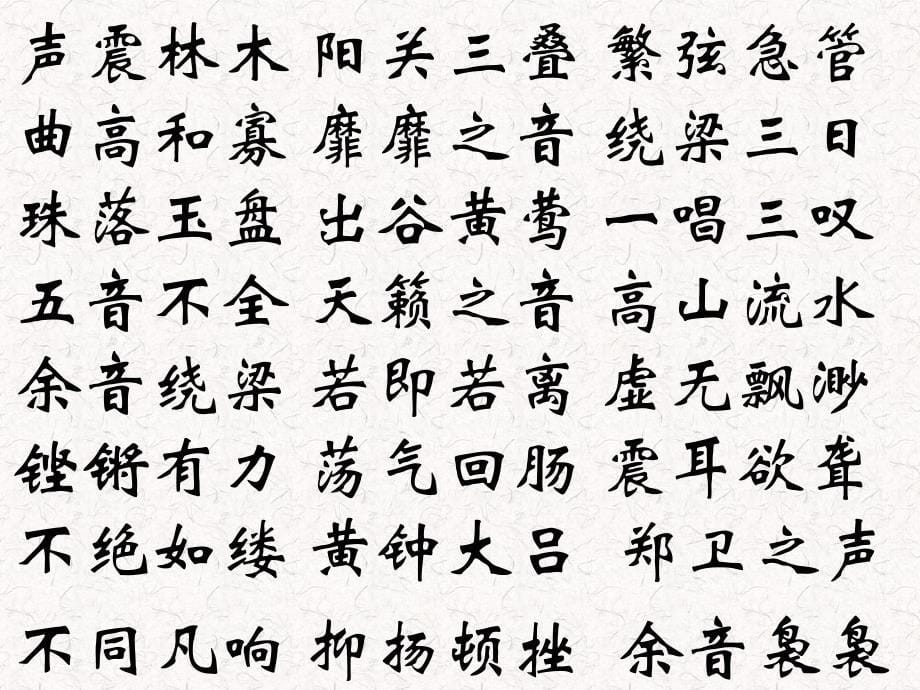 声震林木 阳关三叠 繁弦急管
曲高和寡 靡靡之音 绕梁三日
珠落玉盘 出谷黄莺 一唱三叹
五音不全 天籁之音 高山流水
余音绕梁 若即若离 虚无飘渺
铿锵有力 荡气回肠 震耳欲聋
不绝如缕 黄钟大吕 郑卫之声
不同凡响 抑扬顿挫 余音袅袅